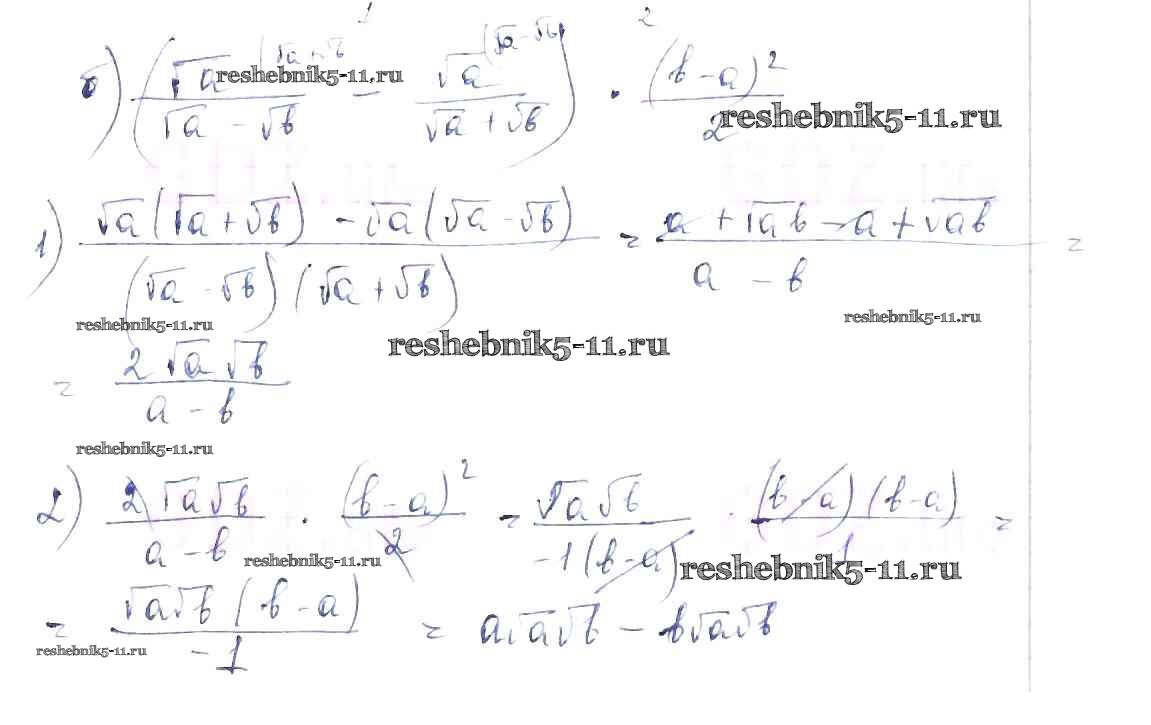 1 2
б) ( √a (√a + √b / (√a − √b) − √a (√a − √b) / (√a + √b) ) · (b − a)² / 2
reshebnik5-11.ru
reshebnik5-11.ru
1) (√a(√a + √b) − √a(√a − √b)) / ((√a − √b)(√a + √b)) = (a + √ab − a + √ab) / (a − b) =
reshebnik5-11.ru
reshebnik5-11.ru
reshebnik5-11.ru
= 2√a√b / (a − b)
reshebnik5-11.ru
2) 2√a√b / (a − b) · (b − a)² / 2 = √a√b / (−1(b − a)) · (b − a)(b − a) / 1 =
reshebnik5-11.ru
reshebnik5-11.ru
= √a√b(b − a) / −1 = a√a√b − b√a√b
reshebnik5-11.ru